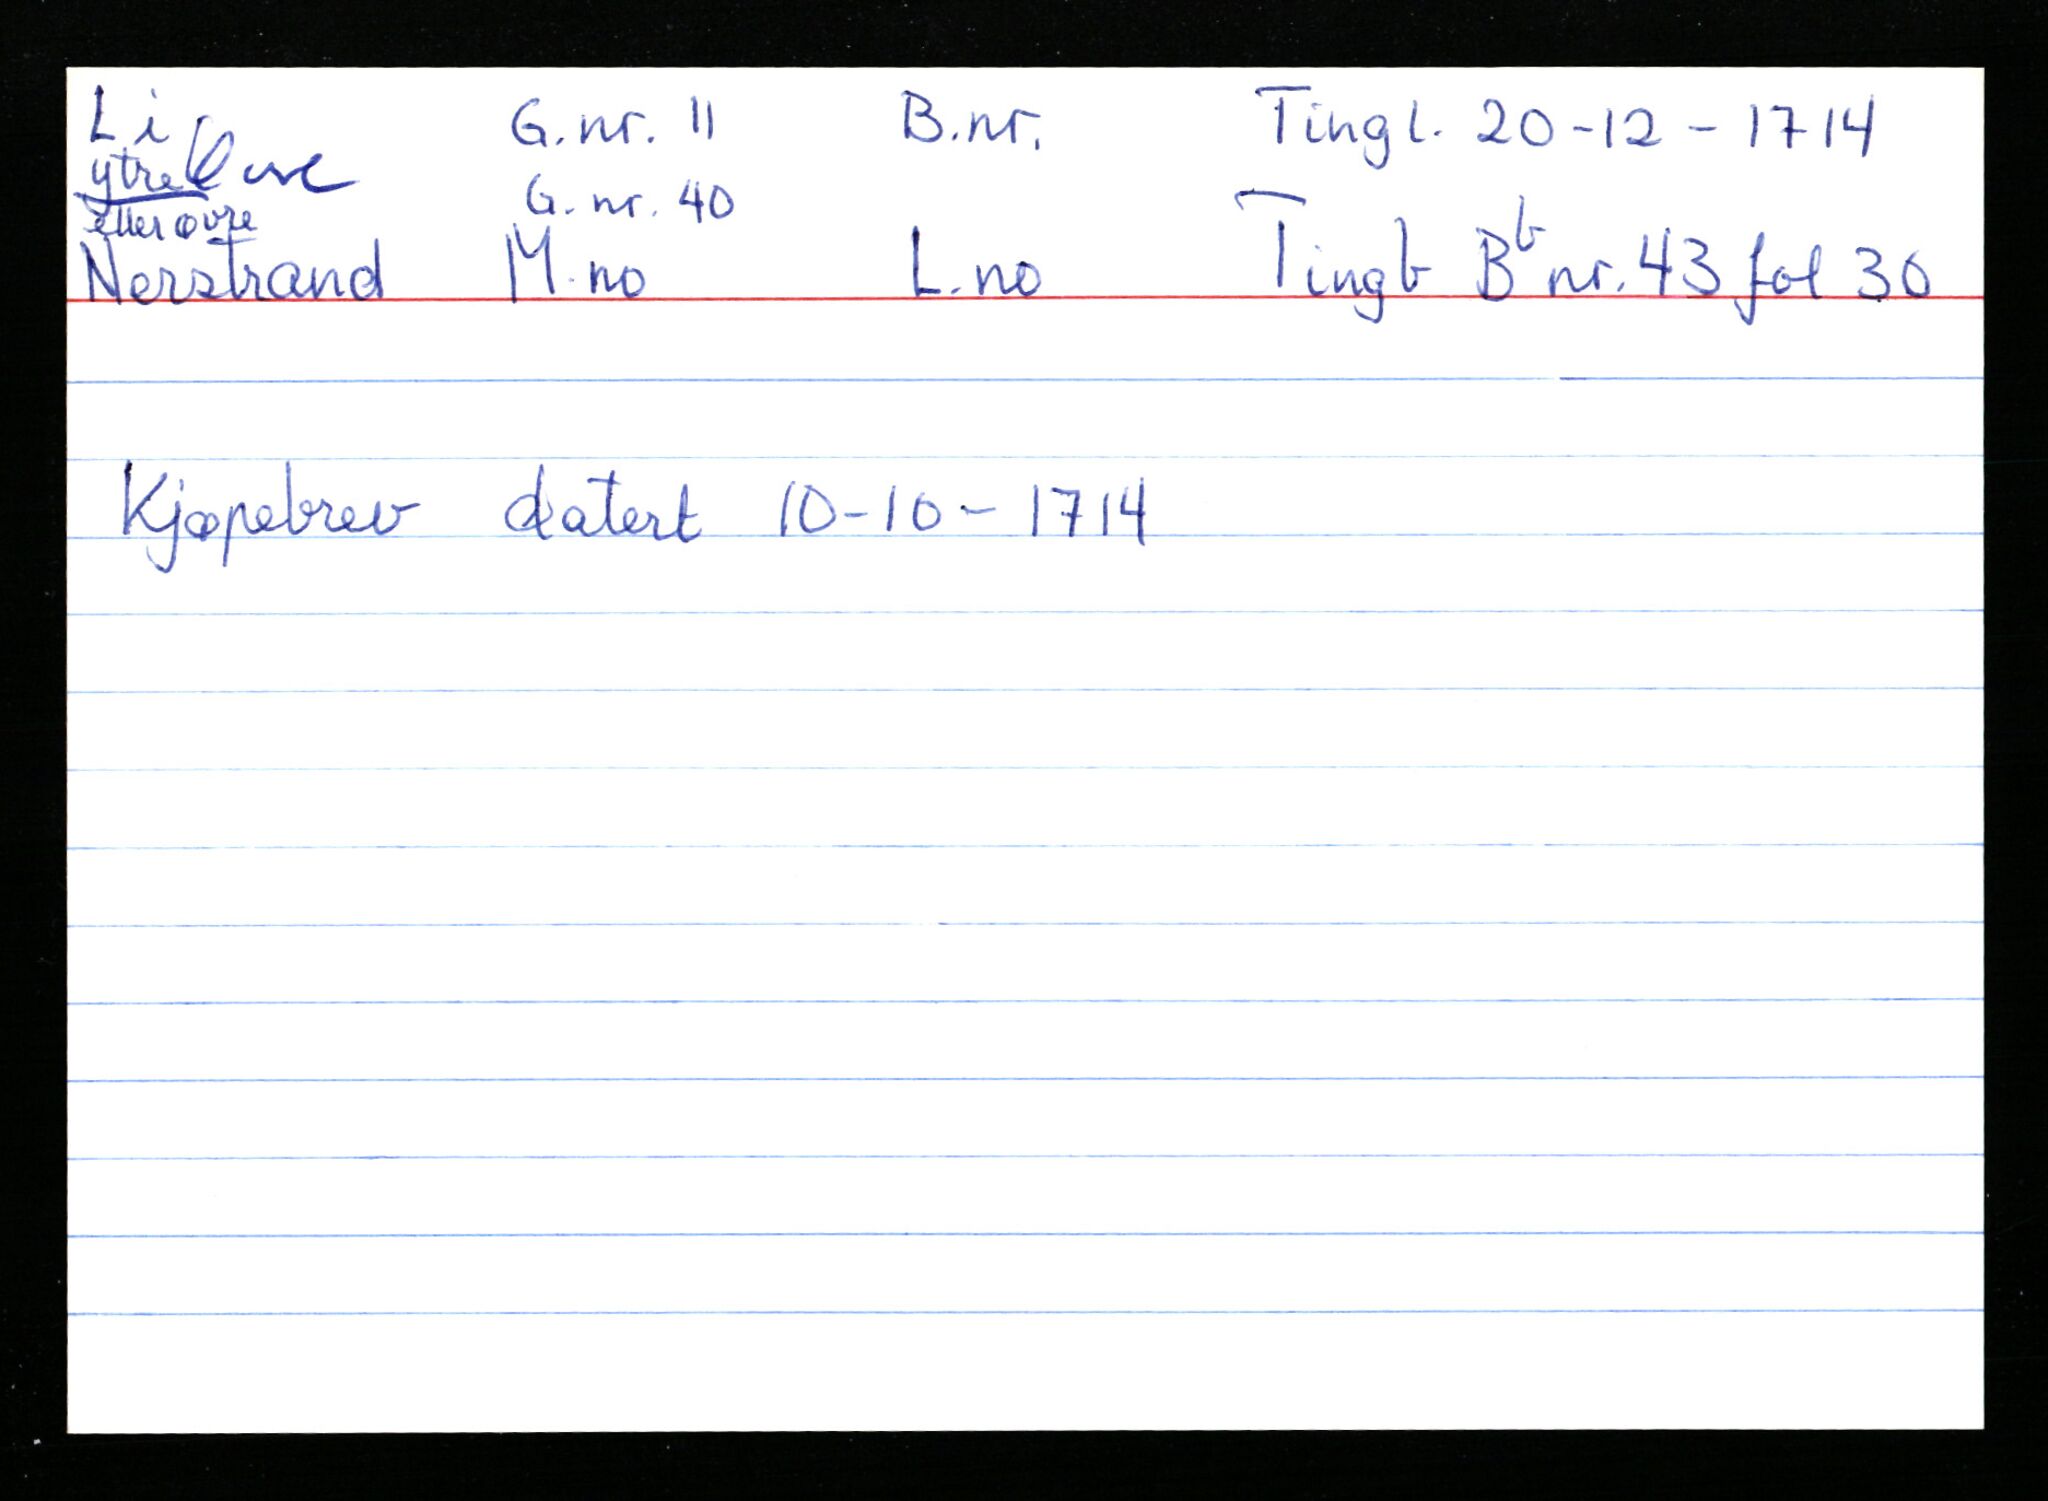 Li G.nr. 11 B.nr. Tingl. 20-12-1714
ytre
G. nr. 40
eller øvre
Nerstrand M.no L.no Tingb Bb nr. 43 fol 30
Kjøpebrev datert 10-10-1714